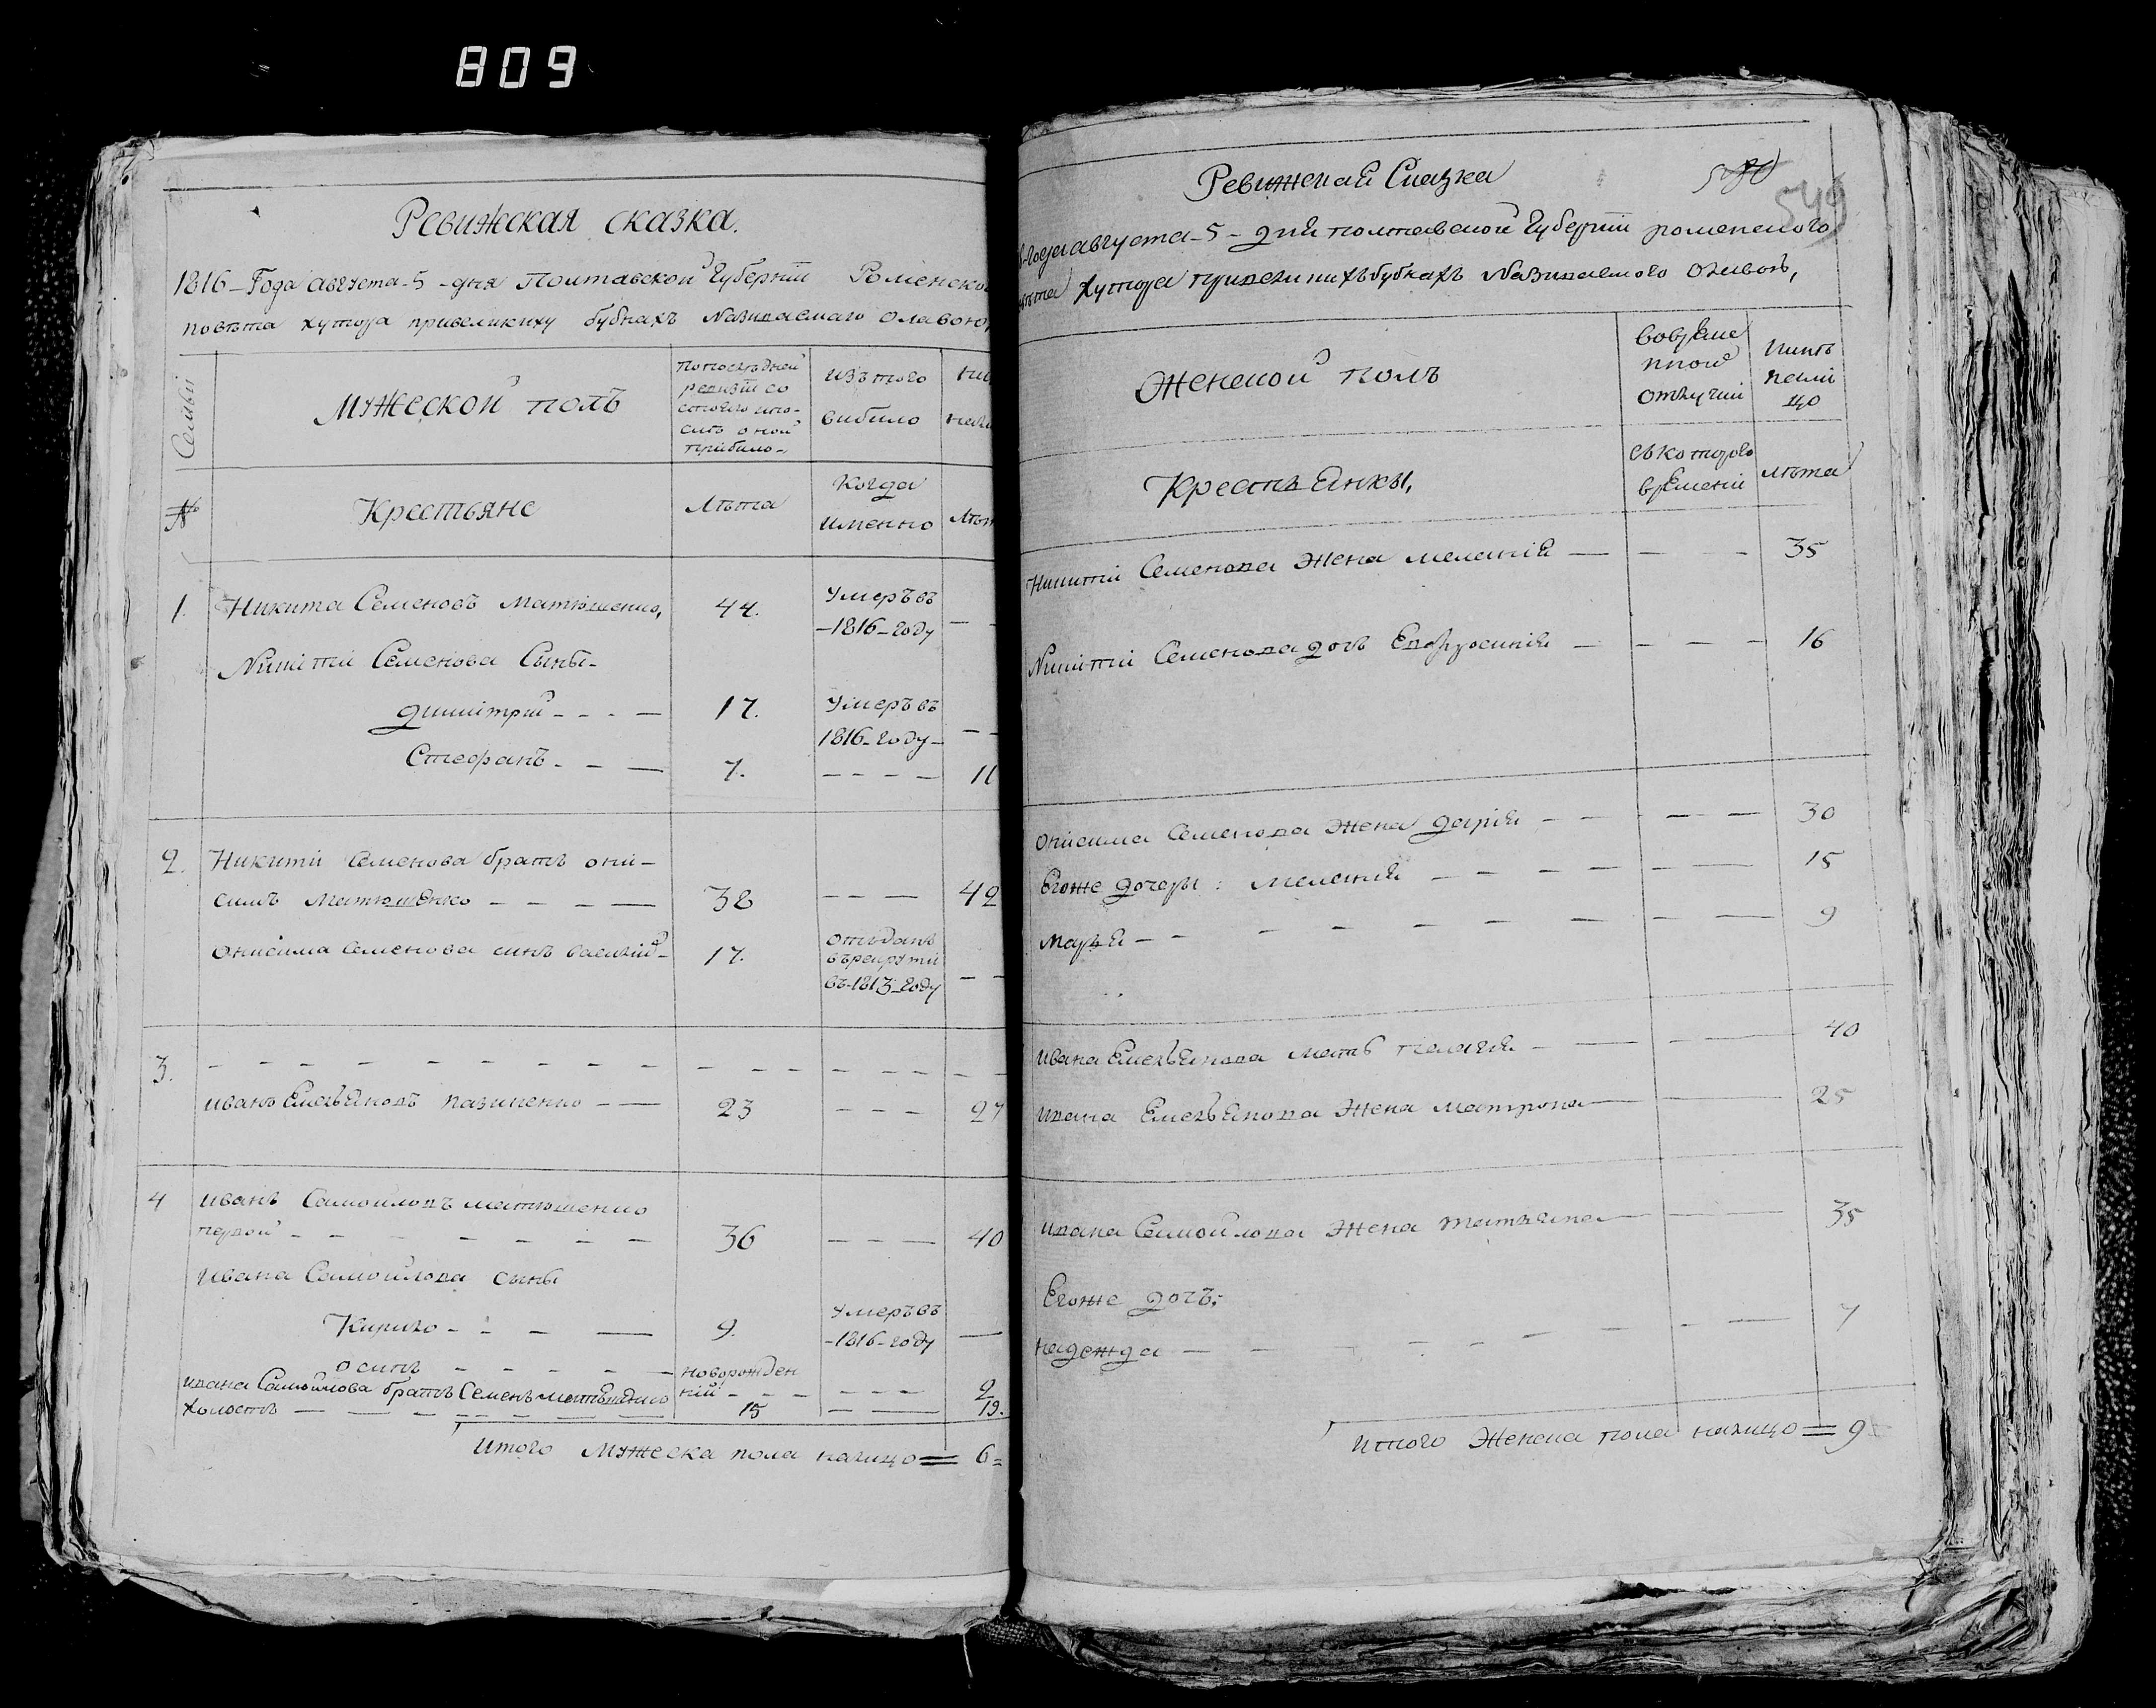 809
Ревижская сказка.
1816-Года августа-5-дня Полтавской Губерніи Роменско
повѣта хутора привеликиху бубнахъ Називаемаго олавою,
Семьи
Мужеской полъ
Популѣдней
ревизіи со
стояло ипо-
слѣ оной
прибило-
изъ того
вибило
ни
нали
№
Крестьяне
Лѣта
Когда
именно
Лѣт
1. Никита Семеновъ Матюшенко, 44. Умеръ въ
-1816-году
Никити Семенова Сыны-
димітрій - - - 17. Умеръ въ
1816-году-
Стефанъ - - - 7. - - - - 11
2. Никити Семенова братъ они-
симъ Матюшенко - - - - 38 - - - 42
Онисима Семенова синъ василій - 17. отъданъ
въ рекрути
въ-1813-году
3. - - - - - - - - -
иванъ Емельяновъ Назименко - - 23 - - - 27
4 иванъ Самойловъ матюшенко
первой - - - - - - - 36 - - - 40
Ивана Самойлова сыны
Кирило - - - - 9. Умеръ въ
-1816-году
осипъ - - - - - новорожден
ній - - - - - - 2
ивана Самойлова братъ Семенъ матюшенко
Холостъ - - - - - - 15 - - 19.
Итого Мужеска пола налицо = 6=
Ревижская Сказка
590
549
года августа-5-дня полтавской Губерніи роменского
повѣта Хутора привеликихъ бубнахъ Називаемого олавою,
Женской полъ
Вовреме
нной
отлучки
Нинѣ
нали
цо
Крестьянки,
съкоторого
времени
лѣта
Никити Семенова Жена меланія - - - - 35
Никити Семенова дочь Евфросинія - - - - 16
Онисима Семенова Жена дарія - - - - 30
Егоже дочери: Меланія - - - - - - 15
Марья - - - - - - - - 9
Ивана Емельянова мать пелагия - - - - 40
Ивана Емельянова Жена матрона - - 25
Ивана Самойлова Жена татьяна - - 35
Егоже дочь:
надежда - - - - - - - 7
Итого Женска пола налицо = 9